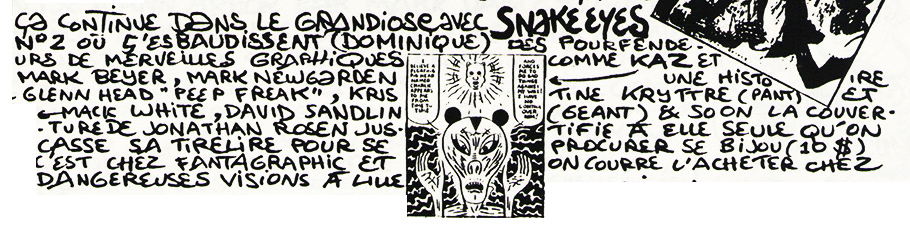 ÇA CONTINUE DANS LE GRANDIOSE AVEC SNAKE EYES
N°2 OÙ S'ESBAUDISSENT (DOMINIQUE) DES POURFENDE-
URS DE MERVEILLES GRAPHIQUES COMME KAZ ET
MARK BEYER, MARK NEWGARDEN ← UNE HISTOIRE
GLENN HEAD "PEEP FREAK", KRIS TINE KRYTTRE (PANT) ET
←MACK WHITE, DAVID SANDLIN (GEANT) & SO ON LA COUVER-
-TURE DE JONATHAN ROSEN JUS- TIFIE À ELLE SEULE QU'ON
CASSE SA TIRELIRE POUR SE PROCURER SE BIJOU (10 $)
C'EST CHEZ FANTAGRAPHIC ET ON COURRE L'ACHETER CHEZ
DANGEREUSES VISIONS À LILLE